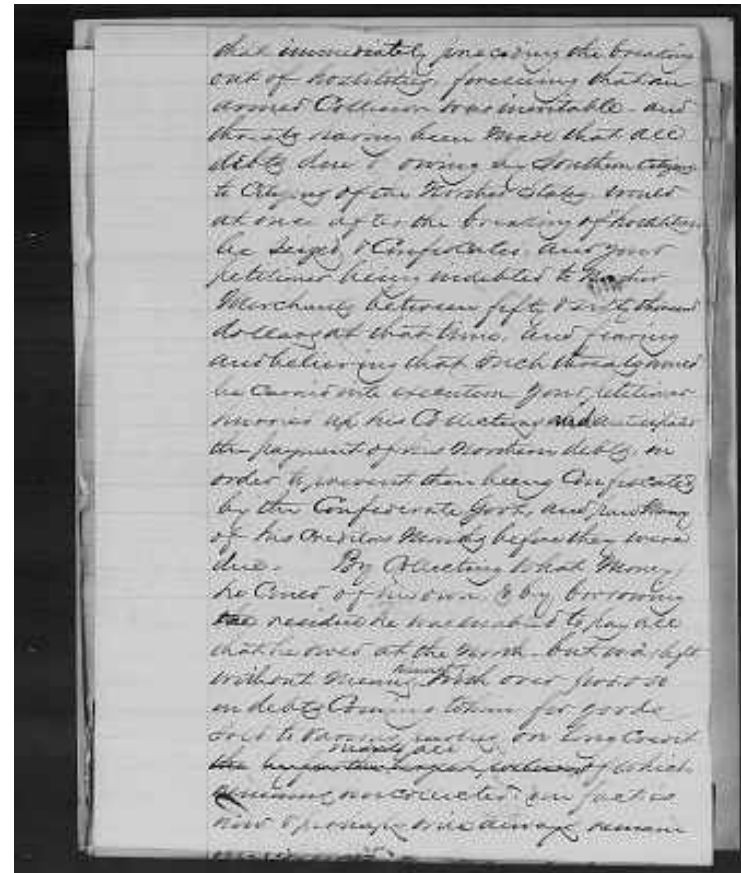 that immediately preceding the breaking
out of hostilities, foreseeing that an
armed Collision was inevitable - and
threats having been made that all
debts due & owing by Southern Citizens
to Citizens of the Northern States would
at once after the breaking of hostilities
be Seized & Confiscated, and your
petitioner being indebted to Northern
Merchants between fifty & sixty thousand
dollars at that time. And fearing
and believing that such threats would
be Carried into execution your petitioner
hurried up his Collections and anticipated
the payment of his Northern debts, in
order to prevent them being Confiscated
by the Confederate Govt, and paid Many
of his Creditors Months before they were
due. By Collecting What Money
he Could of his own & by borrowing
the residue he was enabled to pay all
that he owed at the North - but was left
without means, with over
in debts Coming to him for goods
sold to various parties on long Credit
nearly all
the larger portion of which
remains uncollected, in fact is
now & perhaps will always remain